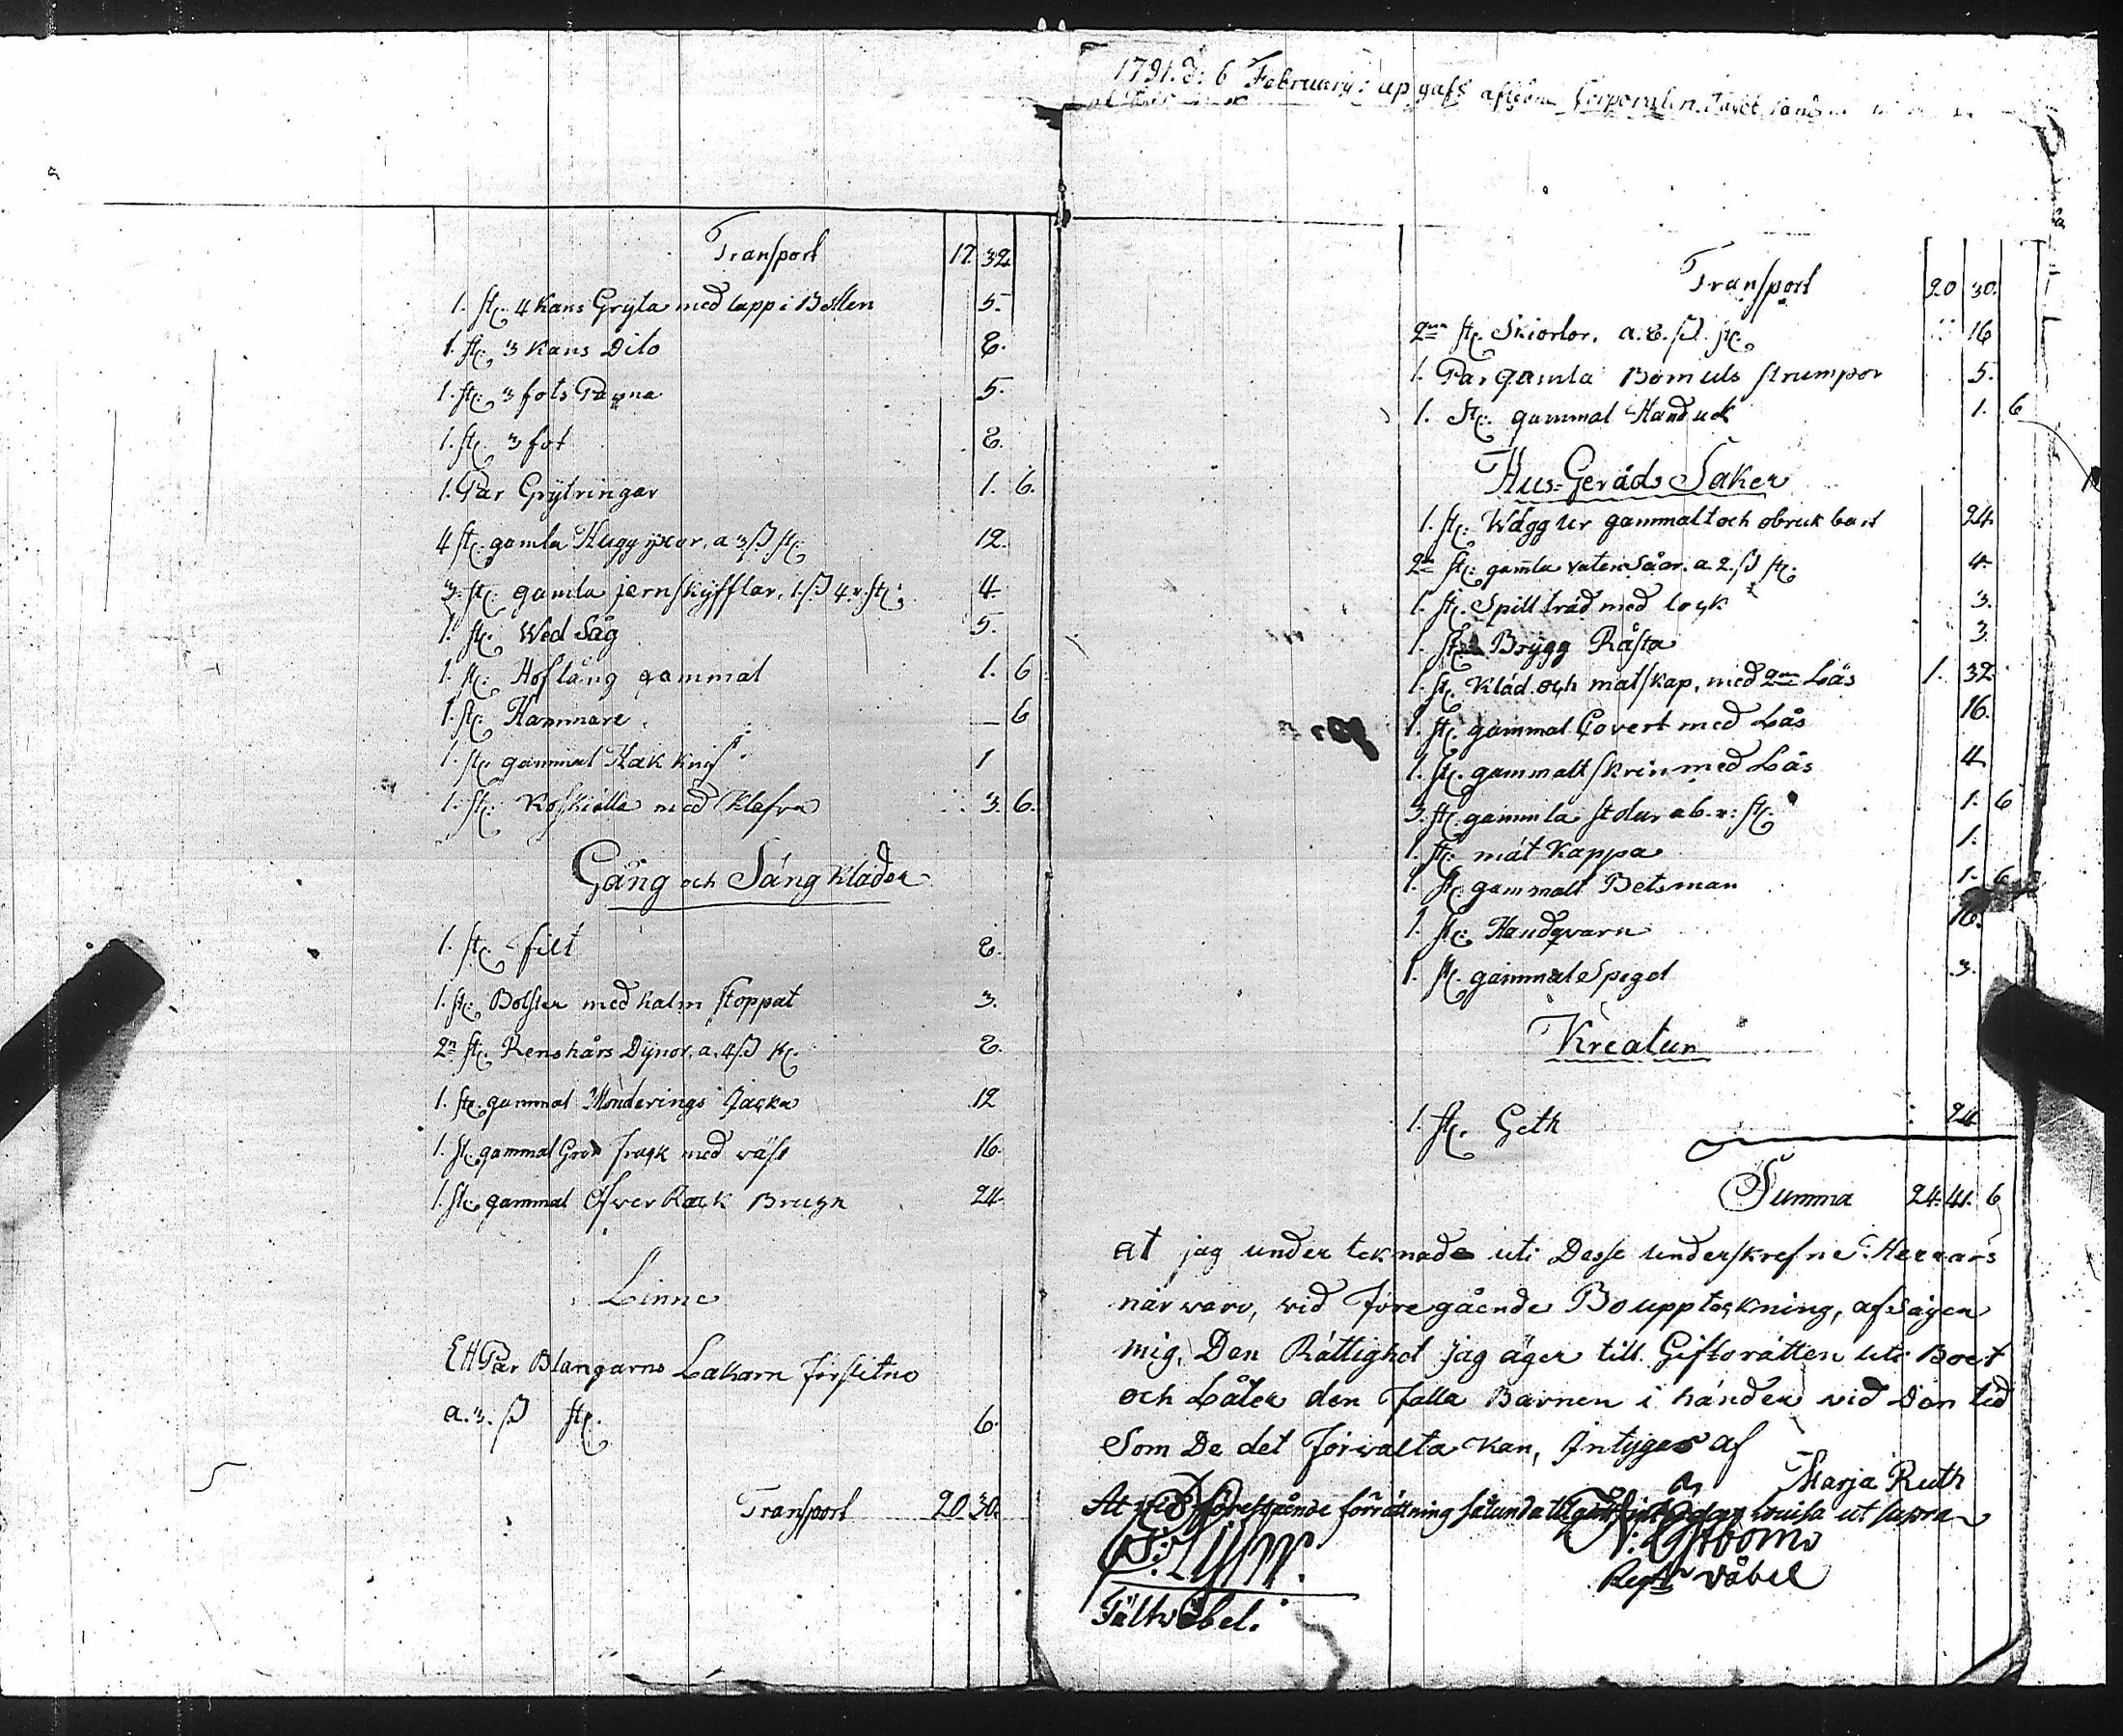 Transport 17. 32.
1. st: 4 Kans Gryta med lapp i Botten 5.
1. st: 3 Kans Dito 8.
1. st: 3 fots Panna 5.
1. st: 3 fot 8.
1. Par Grytringar 1. 6.
4 st: gamla Huggyxor, a 3 ß st: 12.
3 st: gamla jernskyfflar, 1 ß 4 r. st: 4
1. st: Wed Såg 5.
1. st: Hoftång gammal 1. 6
1. st: Hammare — 6
1. st: gammal Hak knif 1
1. st: Koskiälla med Klafva 3. 6.
Gång och Sängkläder
1. st: filt 8.
1. st: Bolster med halm stoppat 3.
2n st: Renshårs Dynor, a. 4 ß st: 8.
1. st: gammal Monderings Jacka 12
1. st: gammal Grå frack med väst 16.
1. st: gammal Öfver Rock Brugn 24.
Linne
Ett Par Blangarns Lakarn förslitno
a. 3. ß st: 6.
Transport 20 30.
1791. d: 6 February: up gafs afledne Corporalen
Transport 20 30.
2ne st: Skiortor, a. 8. ß. st: 16
1. Par gamla Bomuls strumpor 5.
1. st: gammal Handuck 1. 6
Hus-Geråds Saker
1. st: Wägg Ur gammalt och obrukbart 24.
2n st: gamla vatensåar. a 2. ß st: 4
1. st: Spilltråd med lock 3.
1. st: Brygg Råsta 3.
1. st: Kläd och matskap, med 2ne Lås 1. 32
1. st: gammal Covert med Lås 16.
1. st: gammalt skrin med Lås 4
3. st: gammla stolar a 6. r: st: 1. 6
1. st: måt Kappa 1.
1. st: gammalt Betsman 1. 6
1. st: Handqvarn 16.
1. st: gammal Spegel 3.
Kreatur
1. st: Geth 24
Summa 24. 41. 6
at jag under teknade uti Desse underskrefne Herrars
närvaro, vid föregående Boupptekning, afsäger
mig, Den Rättighet jag äger till Giftorätten uti Boet
och Låter den falla Barnen i händer vid Den tid
Som De det förvalta kan, Intygas af
Marja Ruth
At vid förestående förrättning sålunda tilgådt intygar Lovisa ut supra
Fältväbel.
Regts väbel